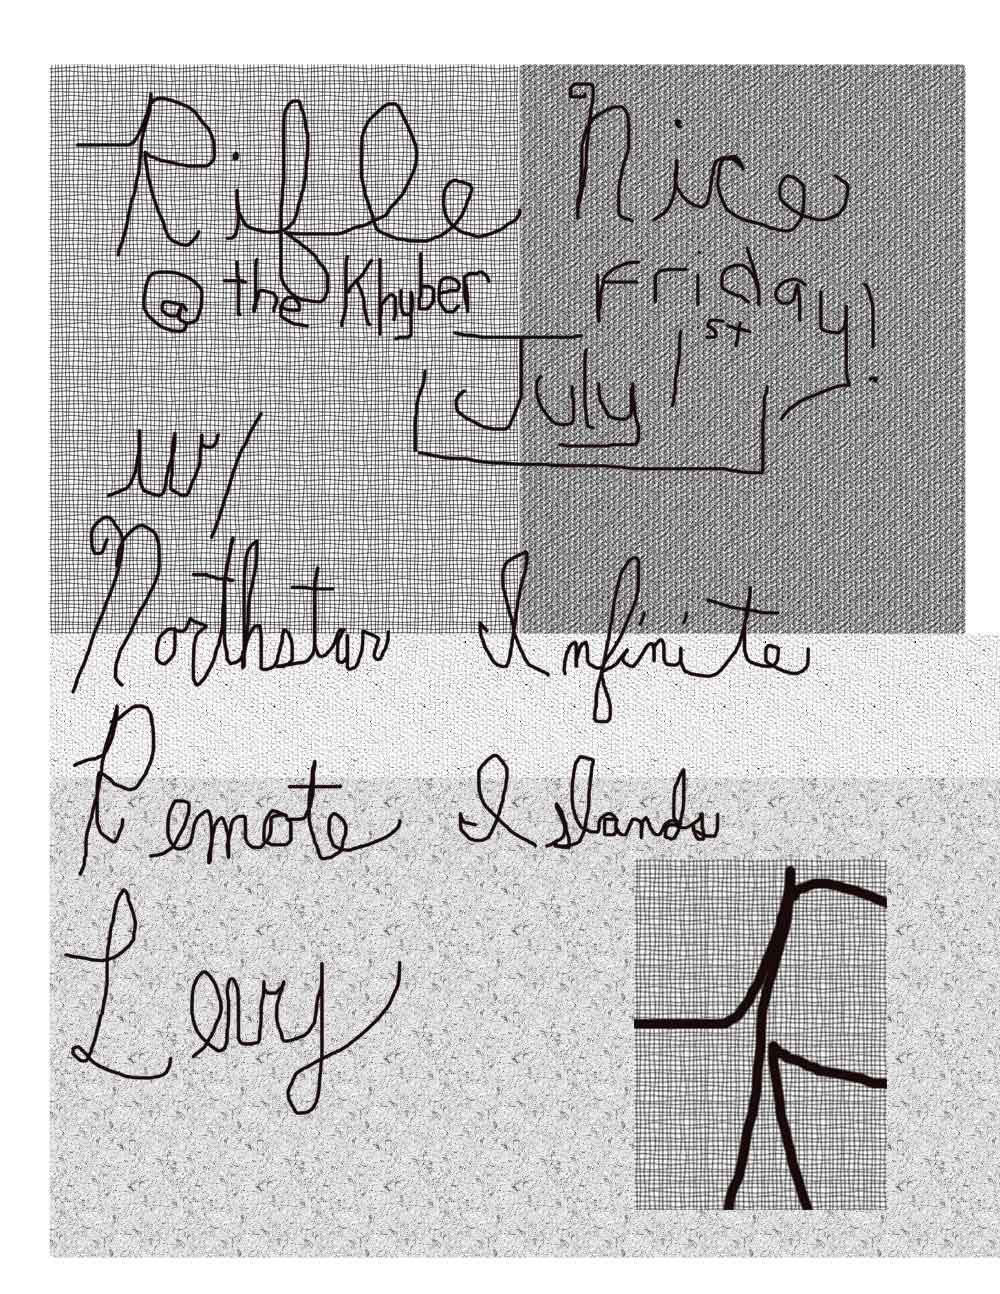 Rifle Nice
@ the Khyber Friday!
July 1st
w/
Northstar Infinite
Remote Islands